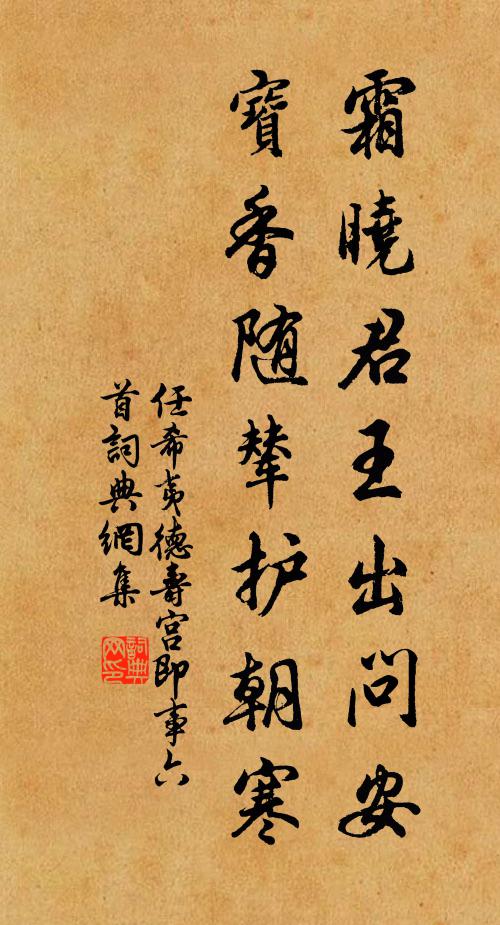 霜曉君王出問安
寶香随輦护朝寒
任希夷德壽宫即事六
首詞典網集
詞典
网印